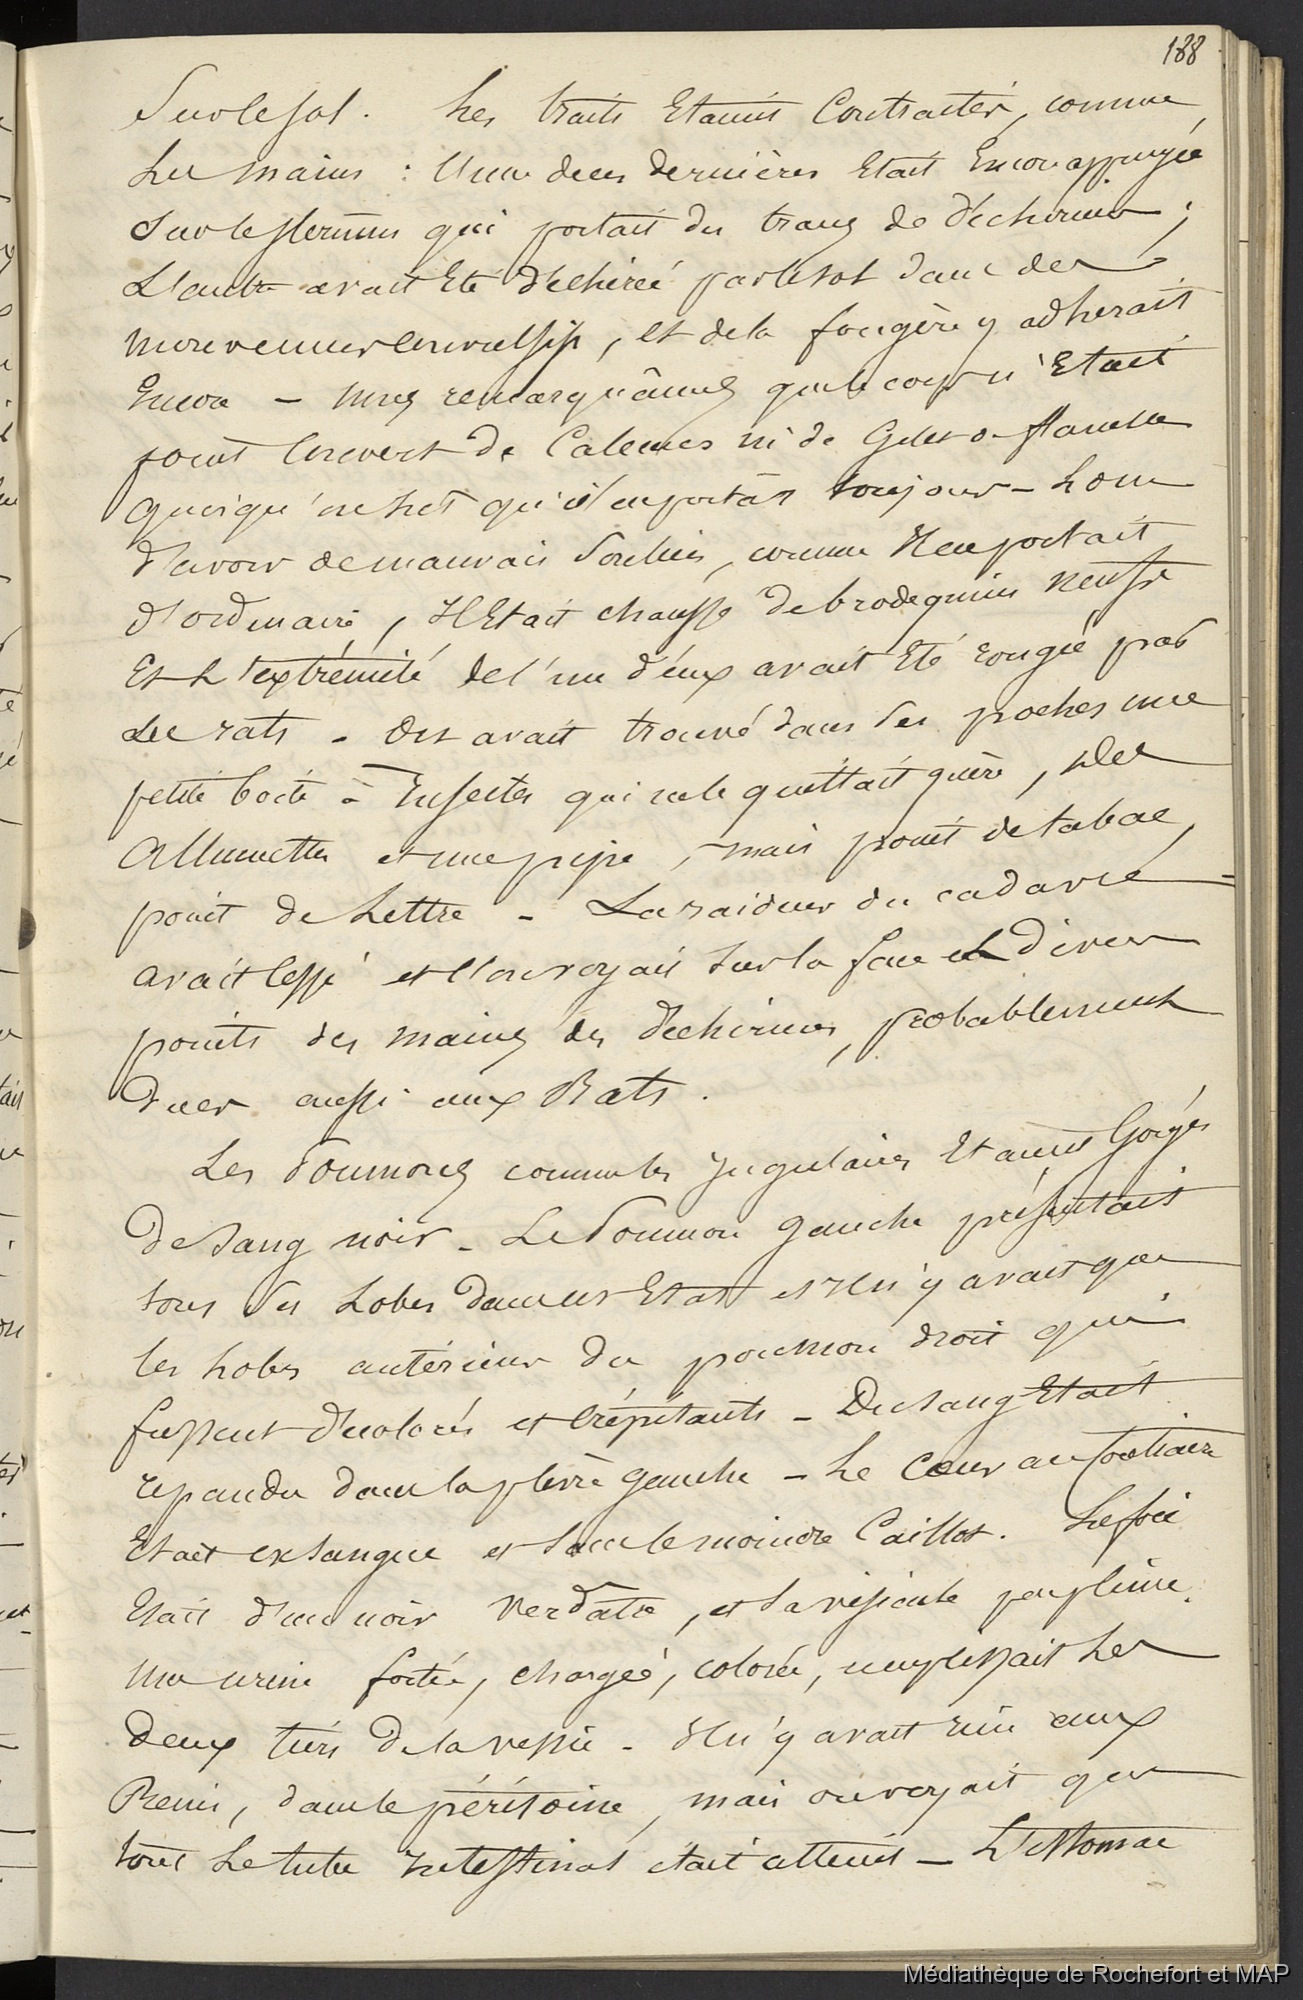 188
Sur le sol. Les traits Etaient Contractés, comme
Les mains : Une de ces dernières Etait Encore appuyée
Sur le sternum qui portait des traces de déchirures ;
L'autre avait Eté déchirée par le sol dans des
mouvements convulsifs, et de la fougère y adherait
Encore - nous remarquâmes que le corps n'Etait
point Couvert de Caleçons ni de Gilet de flanelle
quoiqu'on sut qu'il en portât toujours - Loin
d'avoir de mauvais Souliers, comme Il en portait
d'ordinaire, Il Etait chaussé de brodequins neufs
Et L'extrémité de l'un d'eux avait Eté rongée par
des rats - On avait trouvé dans Ses poches une
petite boite à Insectes qui ne le quittait guère, Des
Allumettes et une pipe, mais point de tabac,
point de Lettre - La raideur du cadavre
avait Cessé et l'on voyait Sur la face et Divers
points des mains des déchirures, probablement
Dues aussi aux Rats.
Les Poumons comme les Jugulaires Etaient Gorgés
De Sang noir - Le Poumon gauche présentait
tous Ses Lobes Dans cet Etat et Il n'y avait que
les Lobes antérieurs du poumon droit qui
fussent décolorés et Crépitants - Du Sang Etait
repandu dans la plèvre gauche - Le Coeur au contraire
Etait exsangue et Sans le moindre Caillot. Le foie
Etait d'un noir verdâtre, et Sa vésicule peu pleine.
Une urine forte, chargée, colorée, remplissait Les
Deux tiers De la vessie - Il n'y avait rien aux
Reins, dans le péritoine, mais on voyait que
tout Le tube Intestinal était atteint - L'Estomac
Médiathèque de Rochefort et MAP